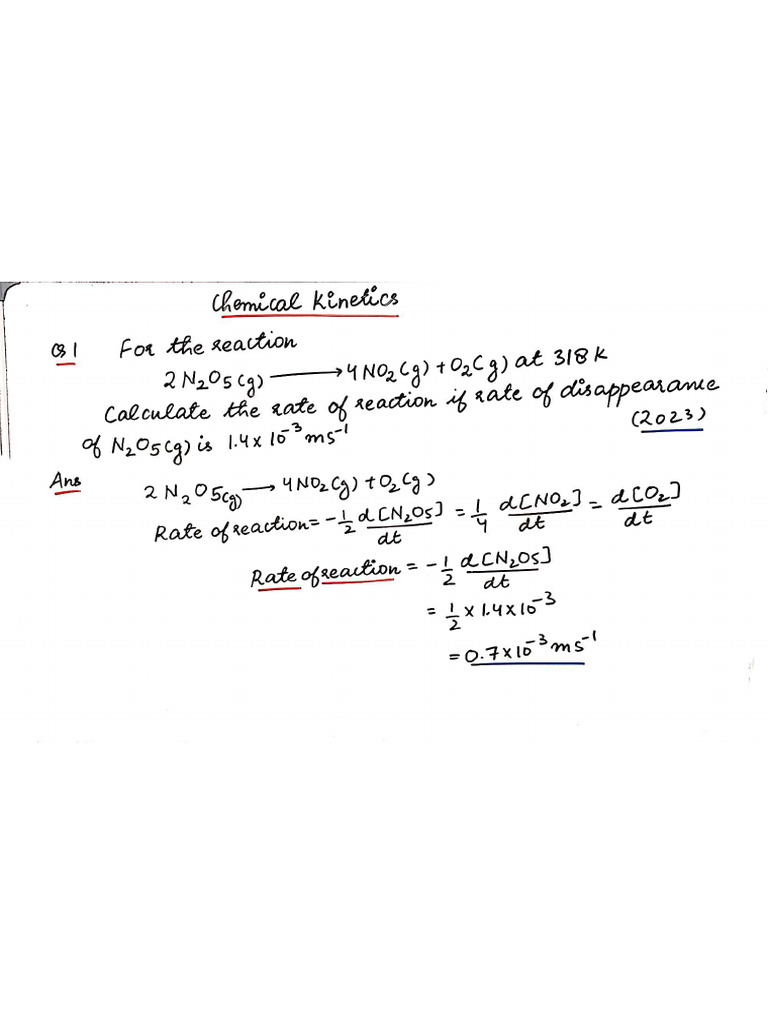 Chemical Kinetics
Q1 For the reaction
2N₂O5(g) ⟶ 4NO₂(g) + O₂(g) at 318K
Calculate the rate of reaction if rate of disappearance
of N₂O5(g) is 1.4 x 10⁻³ ms⁻¹ (2023)
Ans 2N₂O5(g) ⟶ 4NO₂(g) + O₂(g)
Rate of reaction = -1/2 d[N₂O5]/dt = 1/4 d[NO₂]/dt = d[O₂]/dt
Rate of reaction = -1/2 d[N₂O5]/dt
= 1/2 x 1.4 x 10⁻³
= 0.7 x 10⁻³ ms⁻¹